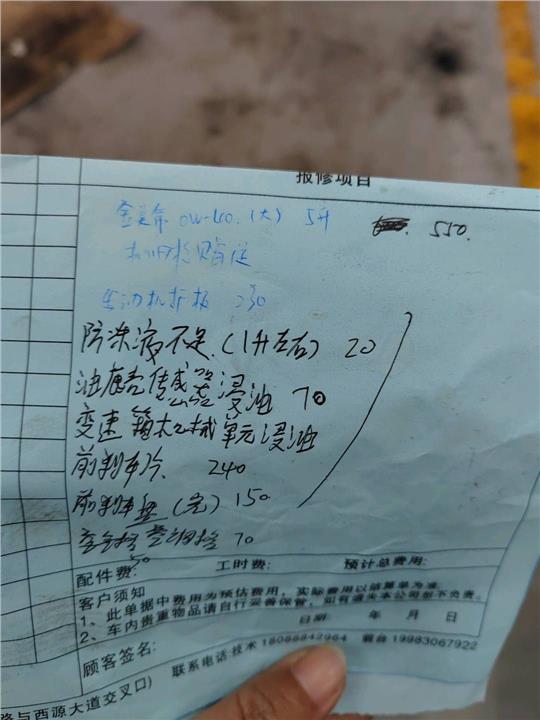 报修项目
金美孚 0W-40.(大) 5升 550.
机油格赠送
发动机护板 230
防冻液不足.(1升左右) 20
油底壳传感器浸油 70
变速箱机械单元浸油
前刹车片 240
前刹车盘(光) 150
空气格 空调格 70
50
配件费: 工时费: 预计总费用:
客户须知
1、此单据中费用为预估费用，实际费用以结算单为准。
2、车内贵重物品请自行妥善保管，如有遗失本公司恕不负责。
日期: 年 月 日
顾客签名:
联系电话:技术 18088842964 前台 19983067922
路与西源大道交叉口)